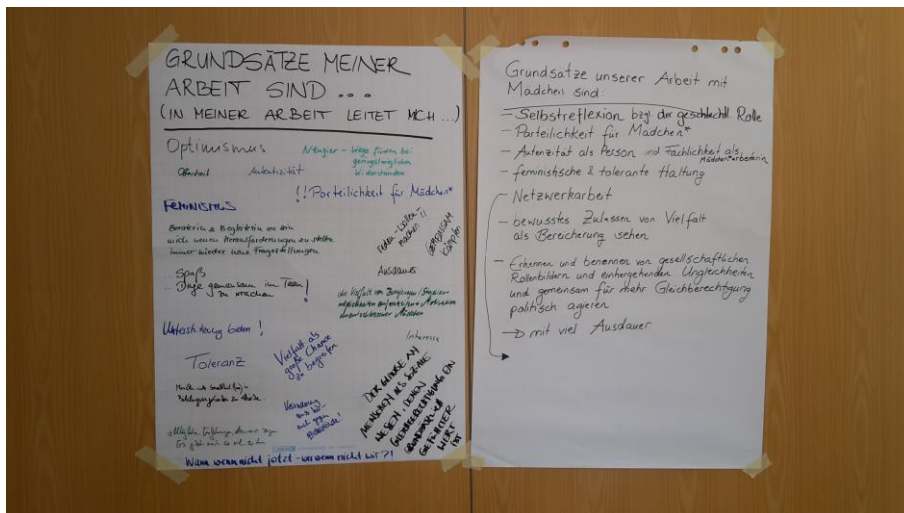 GRUNDSÄTZE MEINER
ARBEIT SIND ...
(IN MEINER ARBEIT LEITET MICH ...)
Optimismus
Neugier - Wege finden bei
geringstmöglichen
Widerständen
Offenheit
Autentizität
!!Parteilichkeit für Mädchen*
FEMINISMUS
Beraterin & Begleiterin zu sein
mich neuen Herausforderungen zu stellen
immer wieder neue Fragestellungen
GEMEINSAM
kämpfen
Spaß
... Dinge gemeinsam im Team
zu machen!
Ausdauer
die Vielfalt von
Unterstützung bieten!
Interesse
Toleranz
Vielfalt als
große Chance
zu begreifen
DER GLAUBE AN
MENSCHEN ALS SOZIALE
WESEN, DENEN
GLEICHBERECHTIGUNG EIN
GEFÜHLTER
WERT
IST
Wann wenn nicht jetzt - wer wenn nicht wir?!
Grundsätze unserer Arbeit mit
Mädchen sind:
- Selbstreflexion bzgl der geschlechtl. Rolle
- Parteilichkeit für Mädchen*
- Autenzität als Person und Fachlichkeit als
Mädchen*arbeiterin
- feministische & tolerante Haltung
- Netzwerkarbeit
- bewusstes Zulassen von Vielfalt
als Bereicherung sehen
- Erkennen und benennen von gesellschaftlichen
Rollenbildern und einhergehenden Ungleichheiten
und gemeinsam für mehr Gleichberechtigung
politisch agieren
→ mit viel Ausdauer